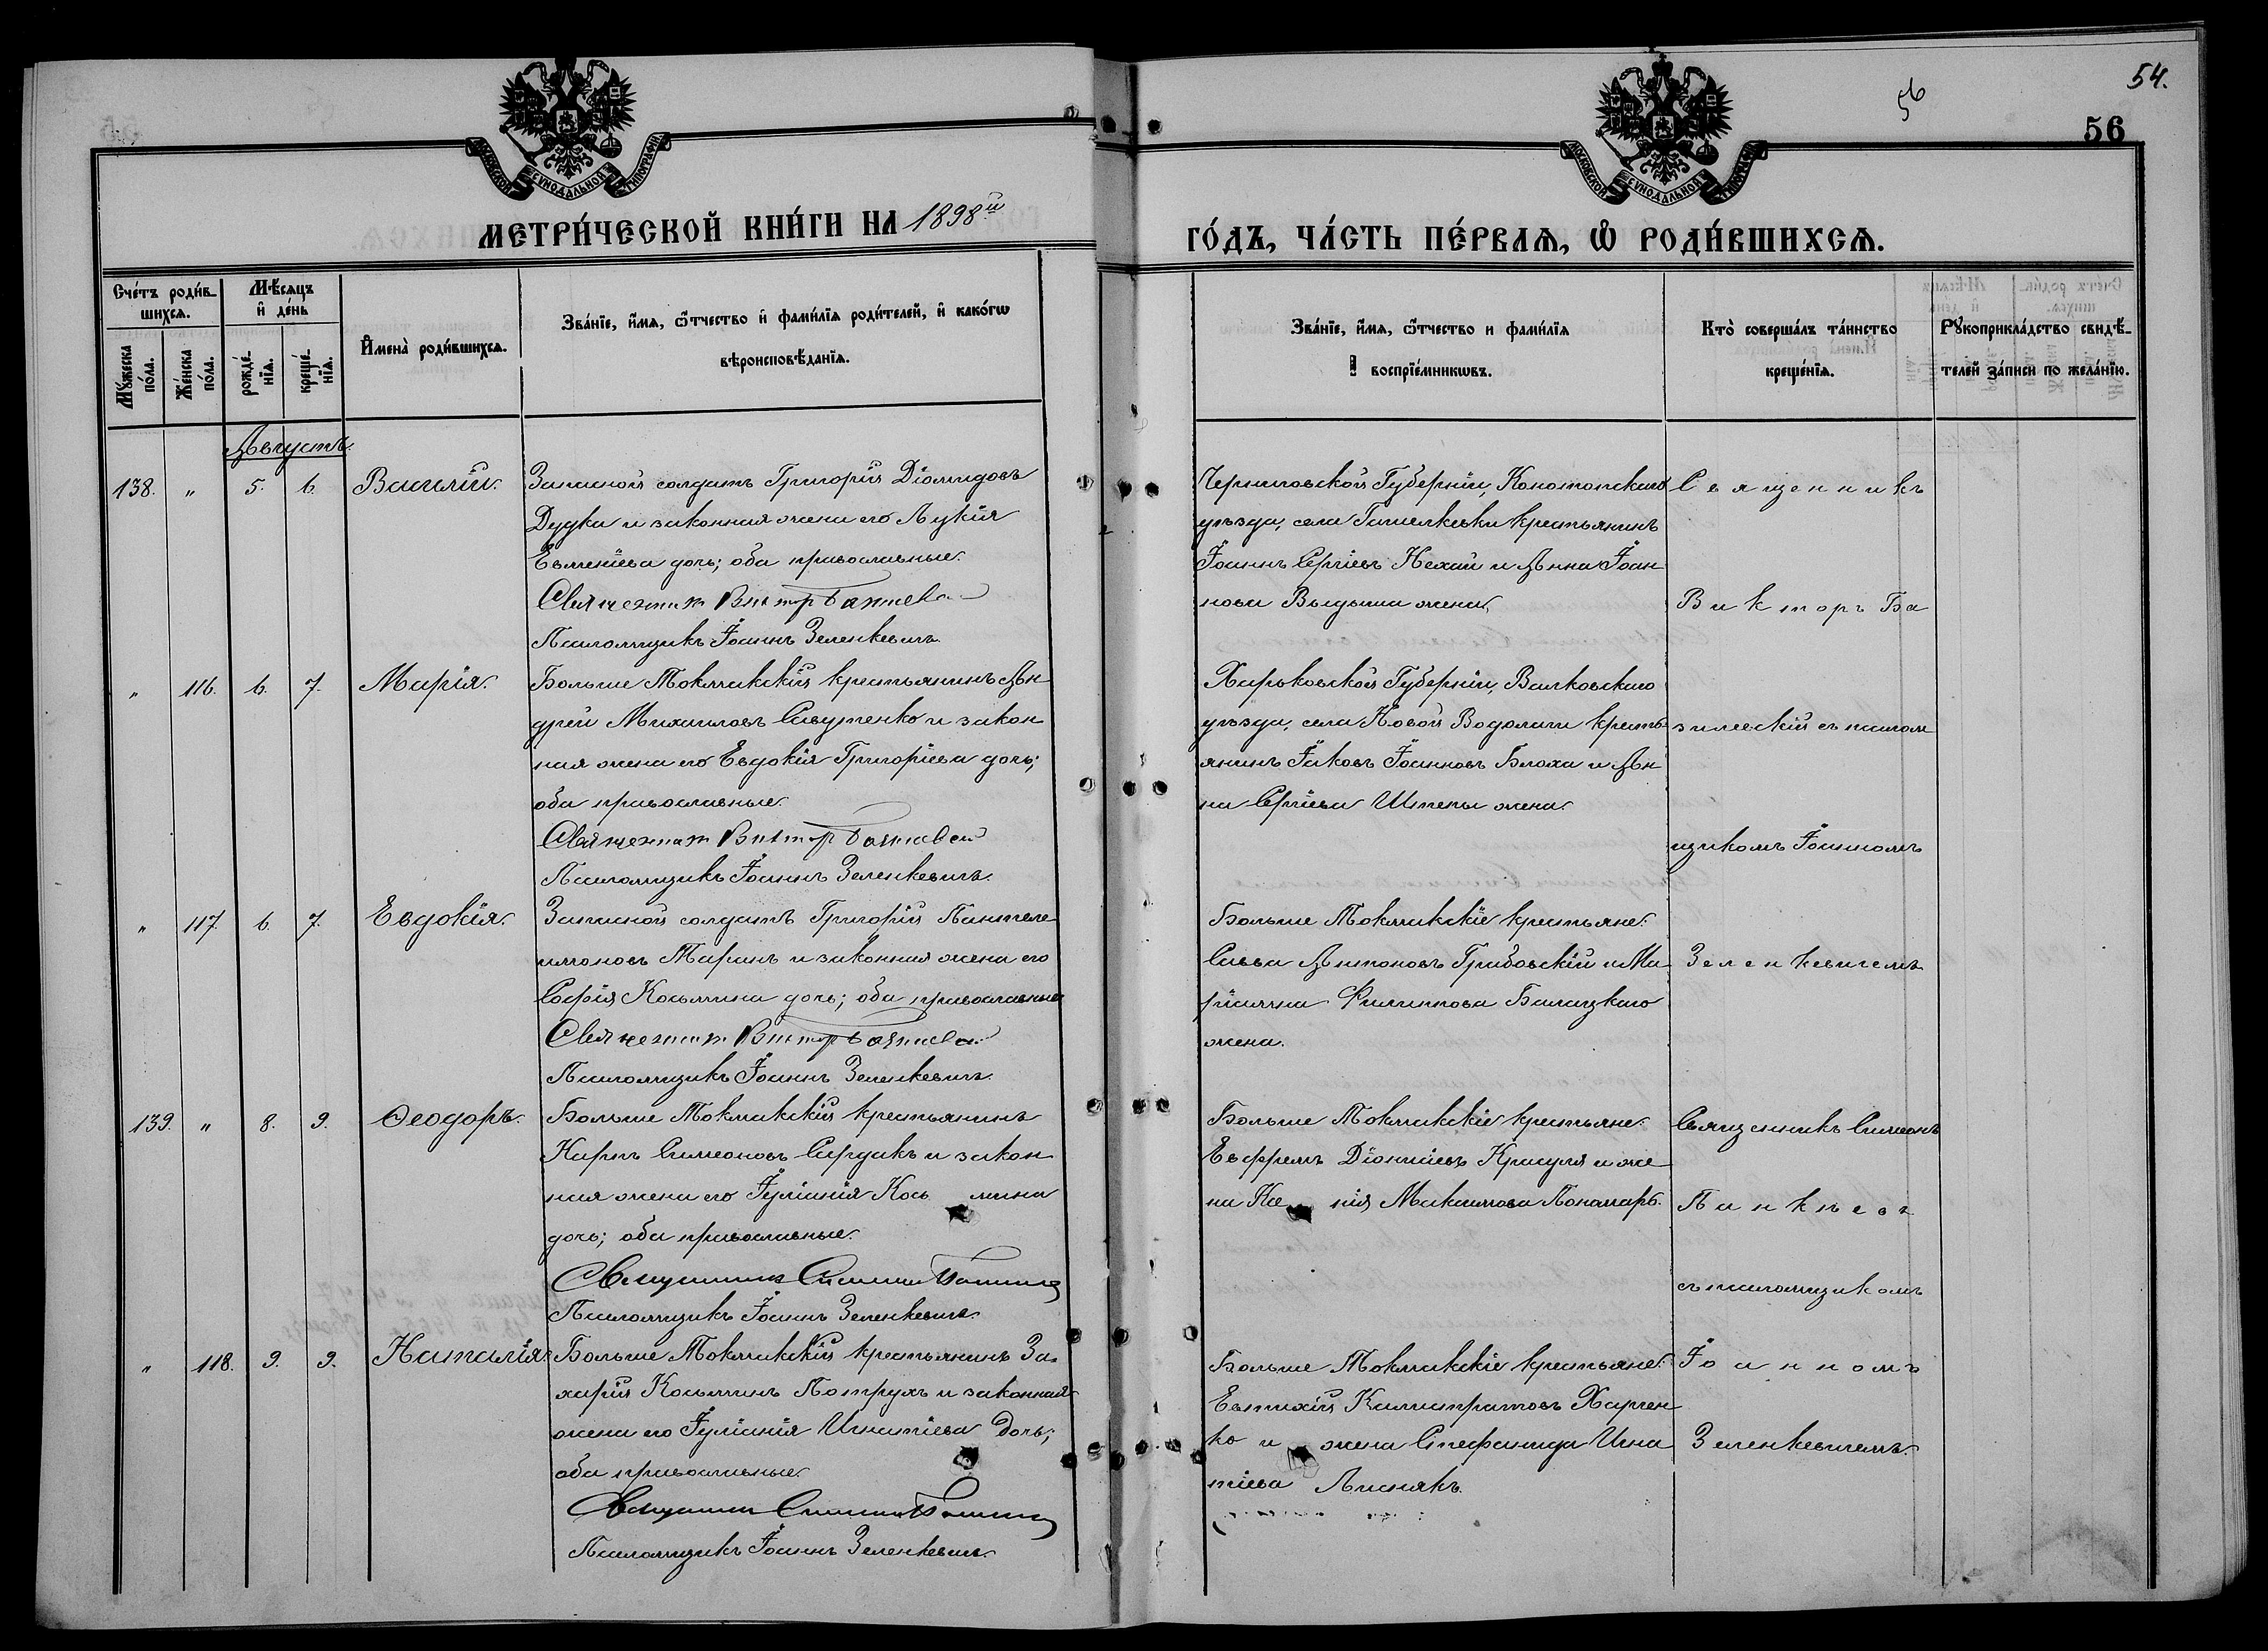 54.
56
56
МОСКОВСКОЙ СѴНОДАЛЬНОЙ ТИПОГРАФІИ
МОСКОВСКОЙ СѴНОДАЛЬНОЙ ТИПОГРАФІИ
МЕТРИ́ЧЕСКОЙ КНИ́ГИ НА 1898й
ГО́ДЪ, ЧА́СТЬ ПЕ́РВАѦ, Ѡ РОДИ́ВШИХСѦ.
Сче́тъ роди́в-
шихсѧ.
Мꙋ́жеска
по́ла.
Же́нска
по́ла.
Мѣ́сяцъ
и҆ де́нь
рожде́-
нїѧ.
креще́-
нїѧ.
И҆мена̀ роди́вшихсѧ.
Зва́нїе, и҆́мѧ, ѻ҆́тчество и҆ фами́лїѧ роди́телей, и҆ како́гѡ
вѣроисповѣ́данїѧ.
Зва́нїе, и҆́мѧ, ѻ҆́тчество и фами́лїѧ
воспрїе́мникѡвъ.
Кто̀ соверша́лъ та́инство
креще́нїѧ.
Рꙋкоприкла́дство свидѣ́-
телей за́писи по жела́нїю.
Августъ.
138. " 5. 6. Василій. Запасной солдатъ Григорій Діомидовъ
Дудка и законная жена его Лукія
Евменіева дочь; оба православные.
Священник Виктор Базилевский
Псаломщикъ Іоаннъ Зеленкевичъ.
Черниговской Губерніи, Конотопскаго
уѣзда, села крестьянинъ
Іоаннъ Сергіевъ Нехай и Анна Іоан
нова жена.
Священникъ
Викторъ Ба
" 116. 6. 7. Марія. Больше Токмакскій крестьянинъ Ан
дрей Михаиловъ Савутенко и закон
ная жена его Евдокія Григоріева дочь;
оба православные.
Священник Виктор Базилевский
Псаломщикъ Іоаннъ Зеленкевичъ.
Харьковской Губерніи, Валковскаго
уѣзда, села Новой Водолаги кресть
янинъ Іаковъ Іоанновъ Блоха и Ан
на Сергіева Штепы жена.
зилевскій съ псалом
щикомъ Іоанномъ
" 117. 6. 7. Евдокія. Запасной солдатъ Григорій Пантеле
имоновъ Таранъ и законная жена его
Софія Косьмина дочь; оба православные.
Священник Виктор Базилевский
Псаломщикъ Іоаннъ Зеленкевичъ.
Больше Токмакскіе крестьяне:
Савва Антоновъ Грибовскій и Ма
ріамна Филиппова Балицкаго
жена.
Зеленкевичемъ.
139. " 8. 9. Ѳеодоръ. Больше Токмакскій крестьянинъ
Карпъ Симеоновъ Сердакъ и закон
ная жена его Іуліанія Кось мина
дочь; оба православные.
Священник Симеон
Псаломщикъ Іоаннъ Зеленкевичъ.
Больше Токмакскіе крестьяне:
Евфремъ Діонисіевъ Красуля и же
на Ксе нія Максимова Пономарь.
Священникъ Симеонъ
съ псаломщикомъ
" 118. 9. 9. Наталія. Больше Токмакскій крестьянинъ За-
харій Косьминъ Петрухъ и законная
жена его Іуліанія Игнатіева дочь;
оба православные.
Священник Симеон
Псаломщикъ Іоаннъ Зеленкевичъ.
Больше Токмакскіе крестьяне:
Евтихій Каллистратовъ Харчен
ко и жена Стефанида Игна
тіева Лиснякъ.
Іоанномъ
Зеленкевичемъ.